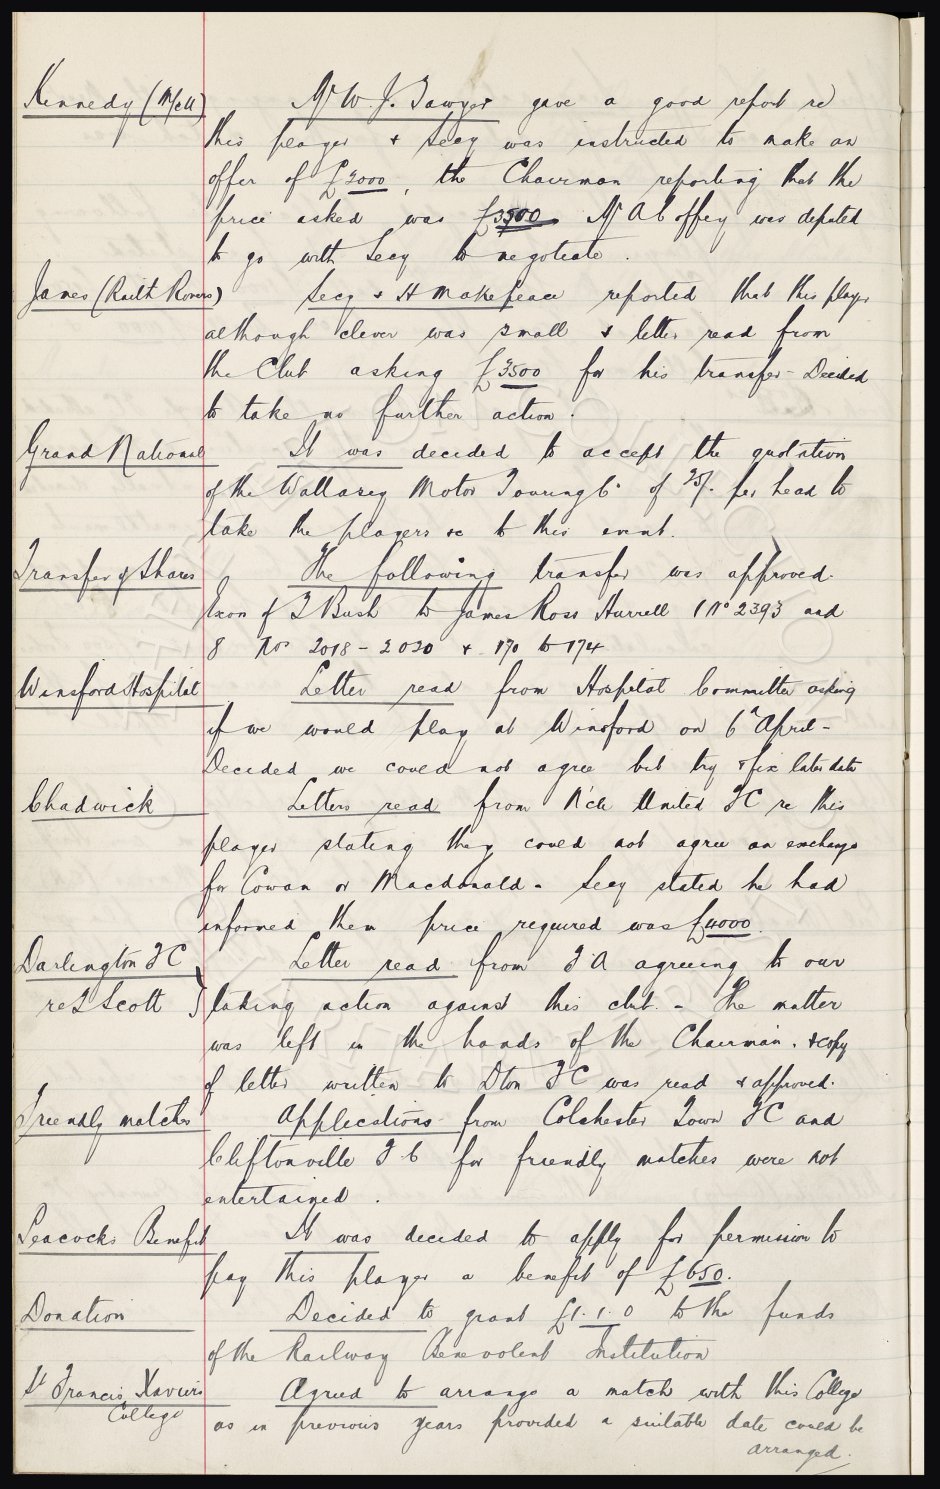 Kennedy (M/c U) Mr W. J. Sawyer gave a good report re
this player & Secy was instructed to make an
offer of £2000, the Chairman reporting that the
price asked was £3500 Mr A Coffey was deputed
to go with Secy to negotiate.
James (Raith Rovers) Secy & H Makepeace reported that this player
although clever was small & letter read from
the Club asking £3500 for his transfer - Decided
to take no further action.
Grand National It was decided to accept the quotation
of the Wallasey Motor Touring Co of 25/- per head to
take the players &c to this event.
Transfer of Shares The following transfer was approved.
Exon of T Bush to James Ross Hurrell 1 No 2393 and
8 Nos 2018 - 2020 & 170 to 174
Winsford Hospital Letter read from Hospital Committee asking
if we would play at Winsford on 6th April -
Decided we could not agree but try & fix later date
Chadwick Letters read from M'ch United FC re this
player stating they could not agree an exchange
for Cowan or Macdonald - Secy stated he had
informed them price required was £4000.
Darlington FC Letter read from F A agreeing to our
re T Scott } taking action against this club. - The matter
was left in the hands of the Chairman. & copy
of letter written to Dton FC was read & approved.
Friendly matches Applications from Colchester Town FC and
Cliftonville F C for friendly matches were not
entertained.
Peacocks Benefit It was decided to apply for permission to
pay this player a benefit of £650.
Donation Decided to grant £1. 1. 0 to the funds
of the Railway Benevolent Institution
St Francis Xaviers Agreed to arrange a match with this College
College as in previous years provided a suitable date could be
arranged.